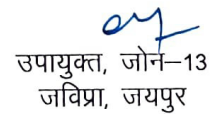 उपायुक्त, जोन–13
जविप्रा, जयपुर